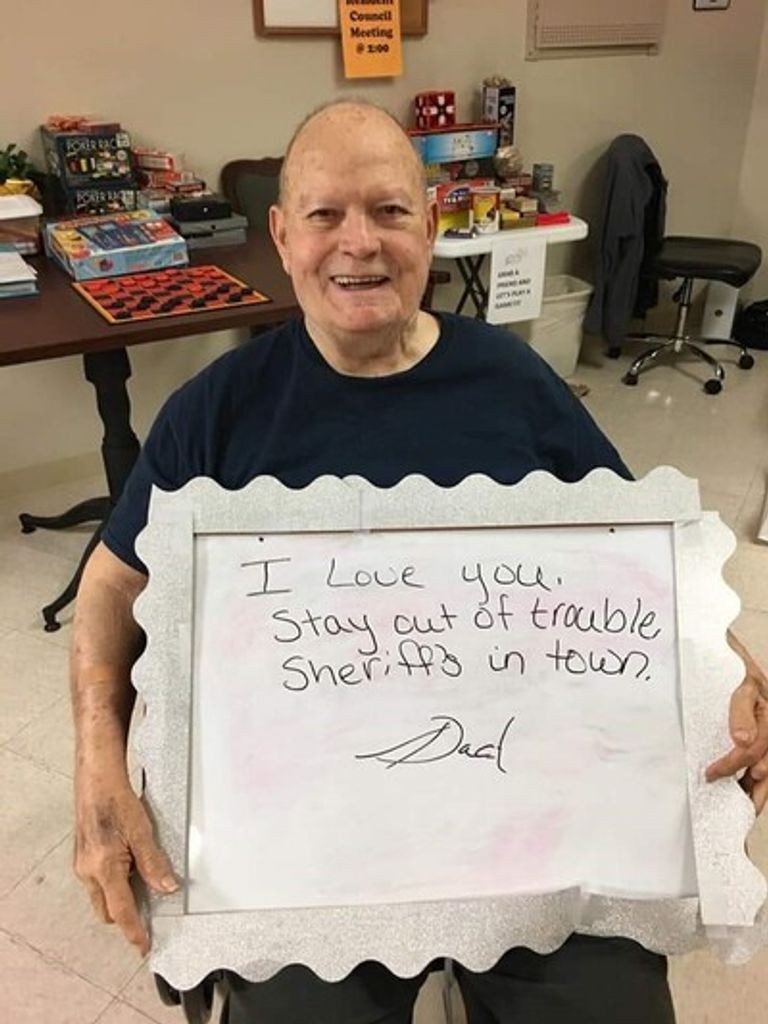 Resident
Council
Meeting
@ 2:00
POKER RACK
POKER RACK
GRAB A
FRIEND AND
LET'S PLAY A
GAME!!!
I Love you.
Stay out of trouble
Sheriff's in town.
Dad